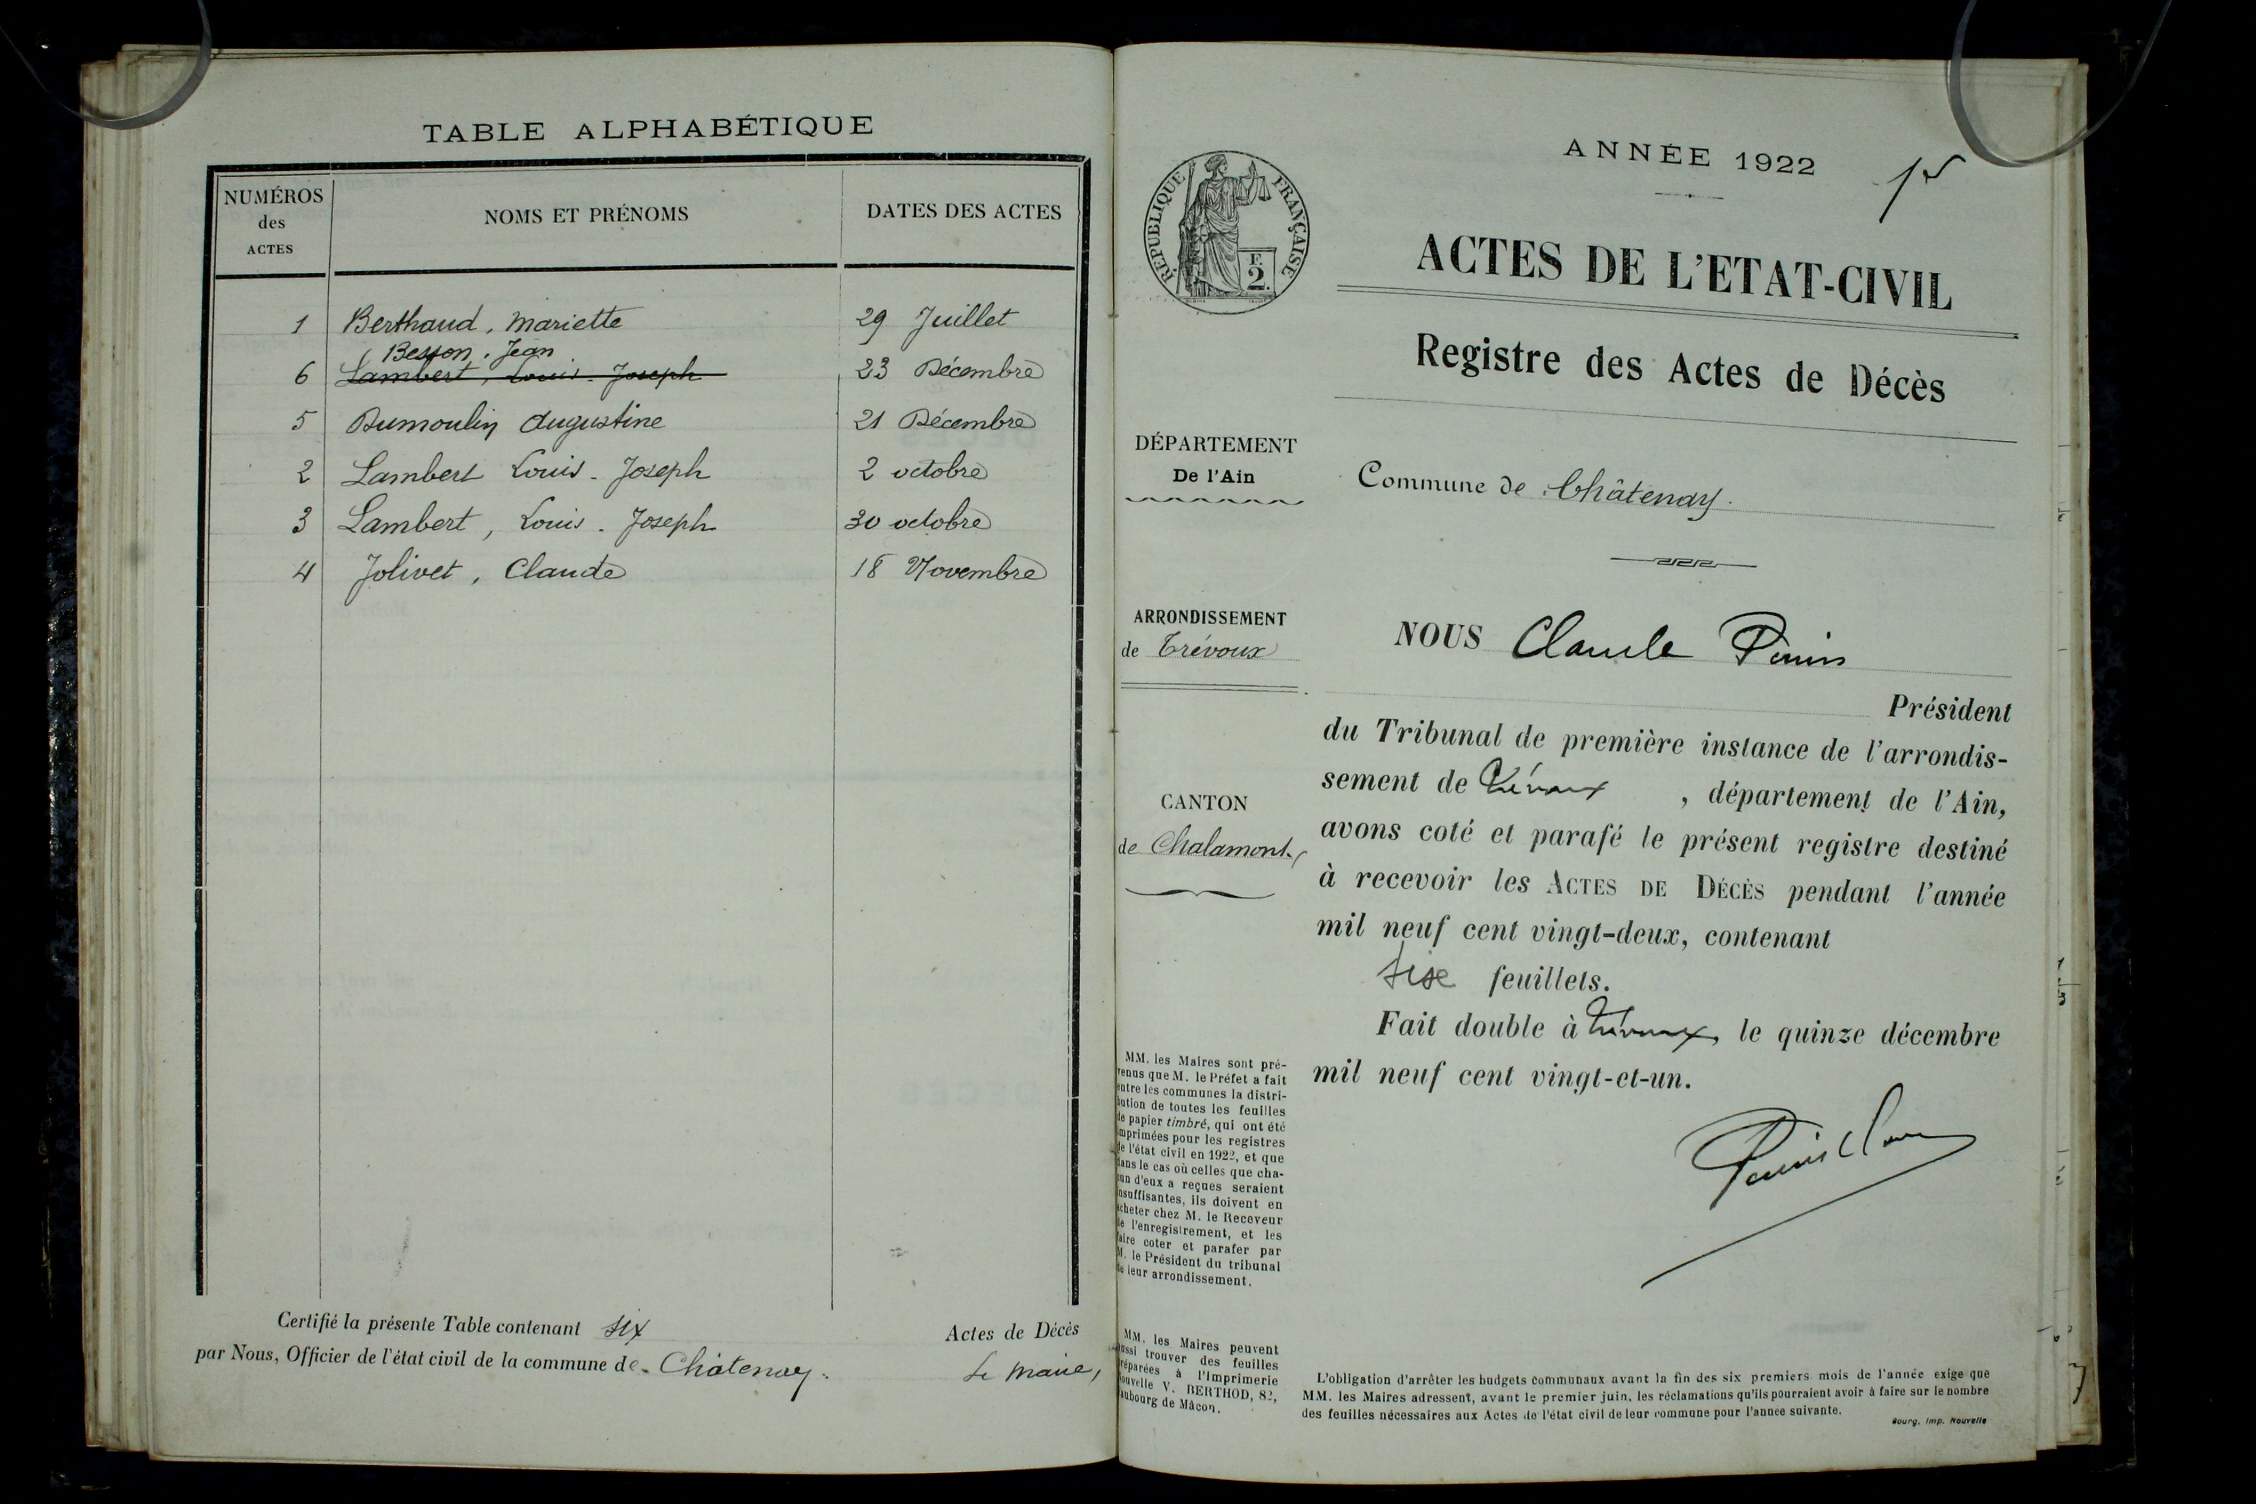 TABLE ALPHABÉTIQUE
NUMÉROS des ACTES
NOMS ET PRÉNOMS
DATES DES ACTES
1 Berthaud, Mariette 29 Juillet
Besson, Jean
6 Lambert, Louis-Joseph 23 Décembre
5 Dumoulin Augustine 21 Décembre
2 Lambert Louis-Joseph 2 octobre
3 Lambert, Louis-Joseph 30 octobre
4 Jolivet, Claude 18 Novembre
Certifié la présente Table contenant six Actes de Décès
par Nous, Officier de l'état civil de la commune de Châtenay.
Le Maire,
ANNÉE 1922
RÉPUBLIQUE FRANÇAISE
F.
2.
ACTES DE L'ETAT-CIVIL
Registre des Actes de Décès
DÉPARTEMENT
De l'Ain
Commune de Châtenay.
ARRONDISSEMENT
de Trévoux
CANTON
de Chalamont
NOUS Claude
Président
du Tribunal de première instance de l'arrondis-
sement de Trévoux, département de l'Ain,
avons coté et parafé le présent registre destiné
à recevoir les ACTES DE DÉCÈS pendant l'année
mil neuf cent vingt-deux, contenant
six feuillets.
Fait double à Trévoux, le quinze décembre
mil neuf cent vingt-et-un.
MM. les Maires sont pré-
venus que M. le Préfet a fait
entre les communes la distri-
bution de toutes les feuilles
de papier timbré, qui ont été
imprimées pour les registres
de l'état civil en 1922, et que
dans le cas où celles que cha-
cun d'eux a reçues seraient
insuffisantes, ils doivent en
acheter chez M. le Receveur
de l'enregistrement, et les
faire coter et parafer par
M. le Président du tribunal
de leur arrondissement.
MM. les Maires peuvent
aussi trouver des feuilles
préparées à l'Imprimerie
Nouvelle V. BERTHOD, 82,
faubourg de Mâcon.
L'obligation d'arrêter les budgets communaux avant la fin des six premiers mois de l'année exige que
MM. les Maires adressent, avant le premier juin, les réclamations qu'ils pourraient avoir à faire sur le nombre
des feuilles nécessaires aux Actes de l'état civil de leur commune pour l'annee suivante.
Bourg, Imp. Nouvelle